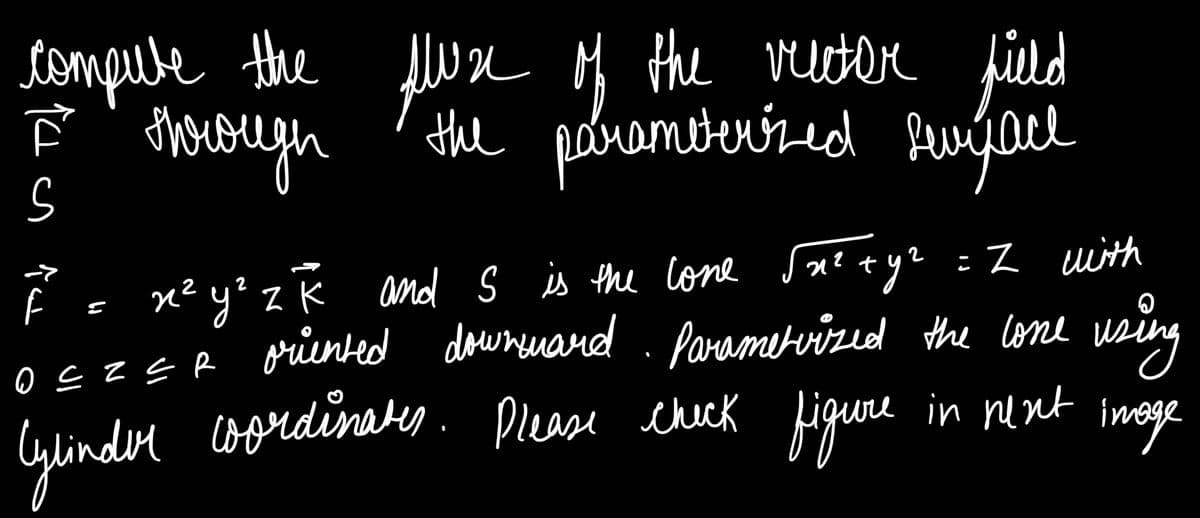 compute the flux of the vector field
F⃗ through the parameterized surface
S
F⃗ = x² y² z k⃗ and S is the cone √x² + y² = z with
0 ≤ z ≤ R oriented downward. Parameterized the cone using
Cylinder coordinates. Please check figure in next image